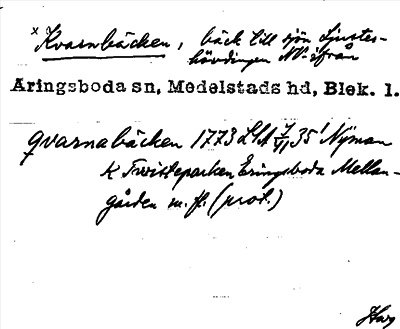 x Kvarnbäcken, bäck till sjön Ljustes-
hövdingen NV-ifrån
Aringsboda sn, Medelstads hd, Blek. l.
qvarnabäcken 1773 LSA 35 Nyman
K Twisteparken Eringsboda Mellan-
gården m. fl. (prot.)